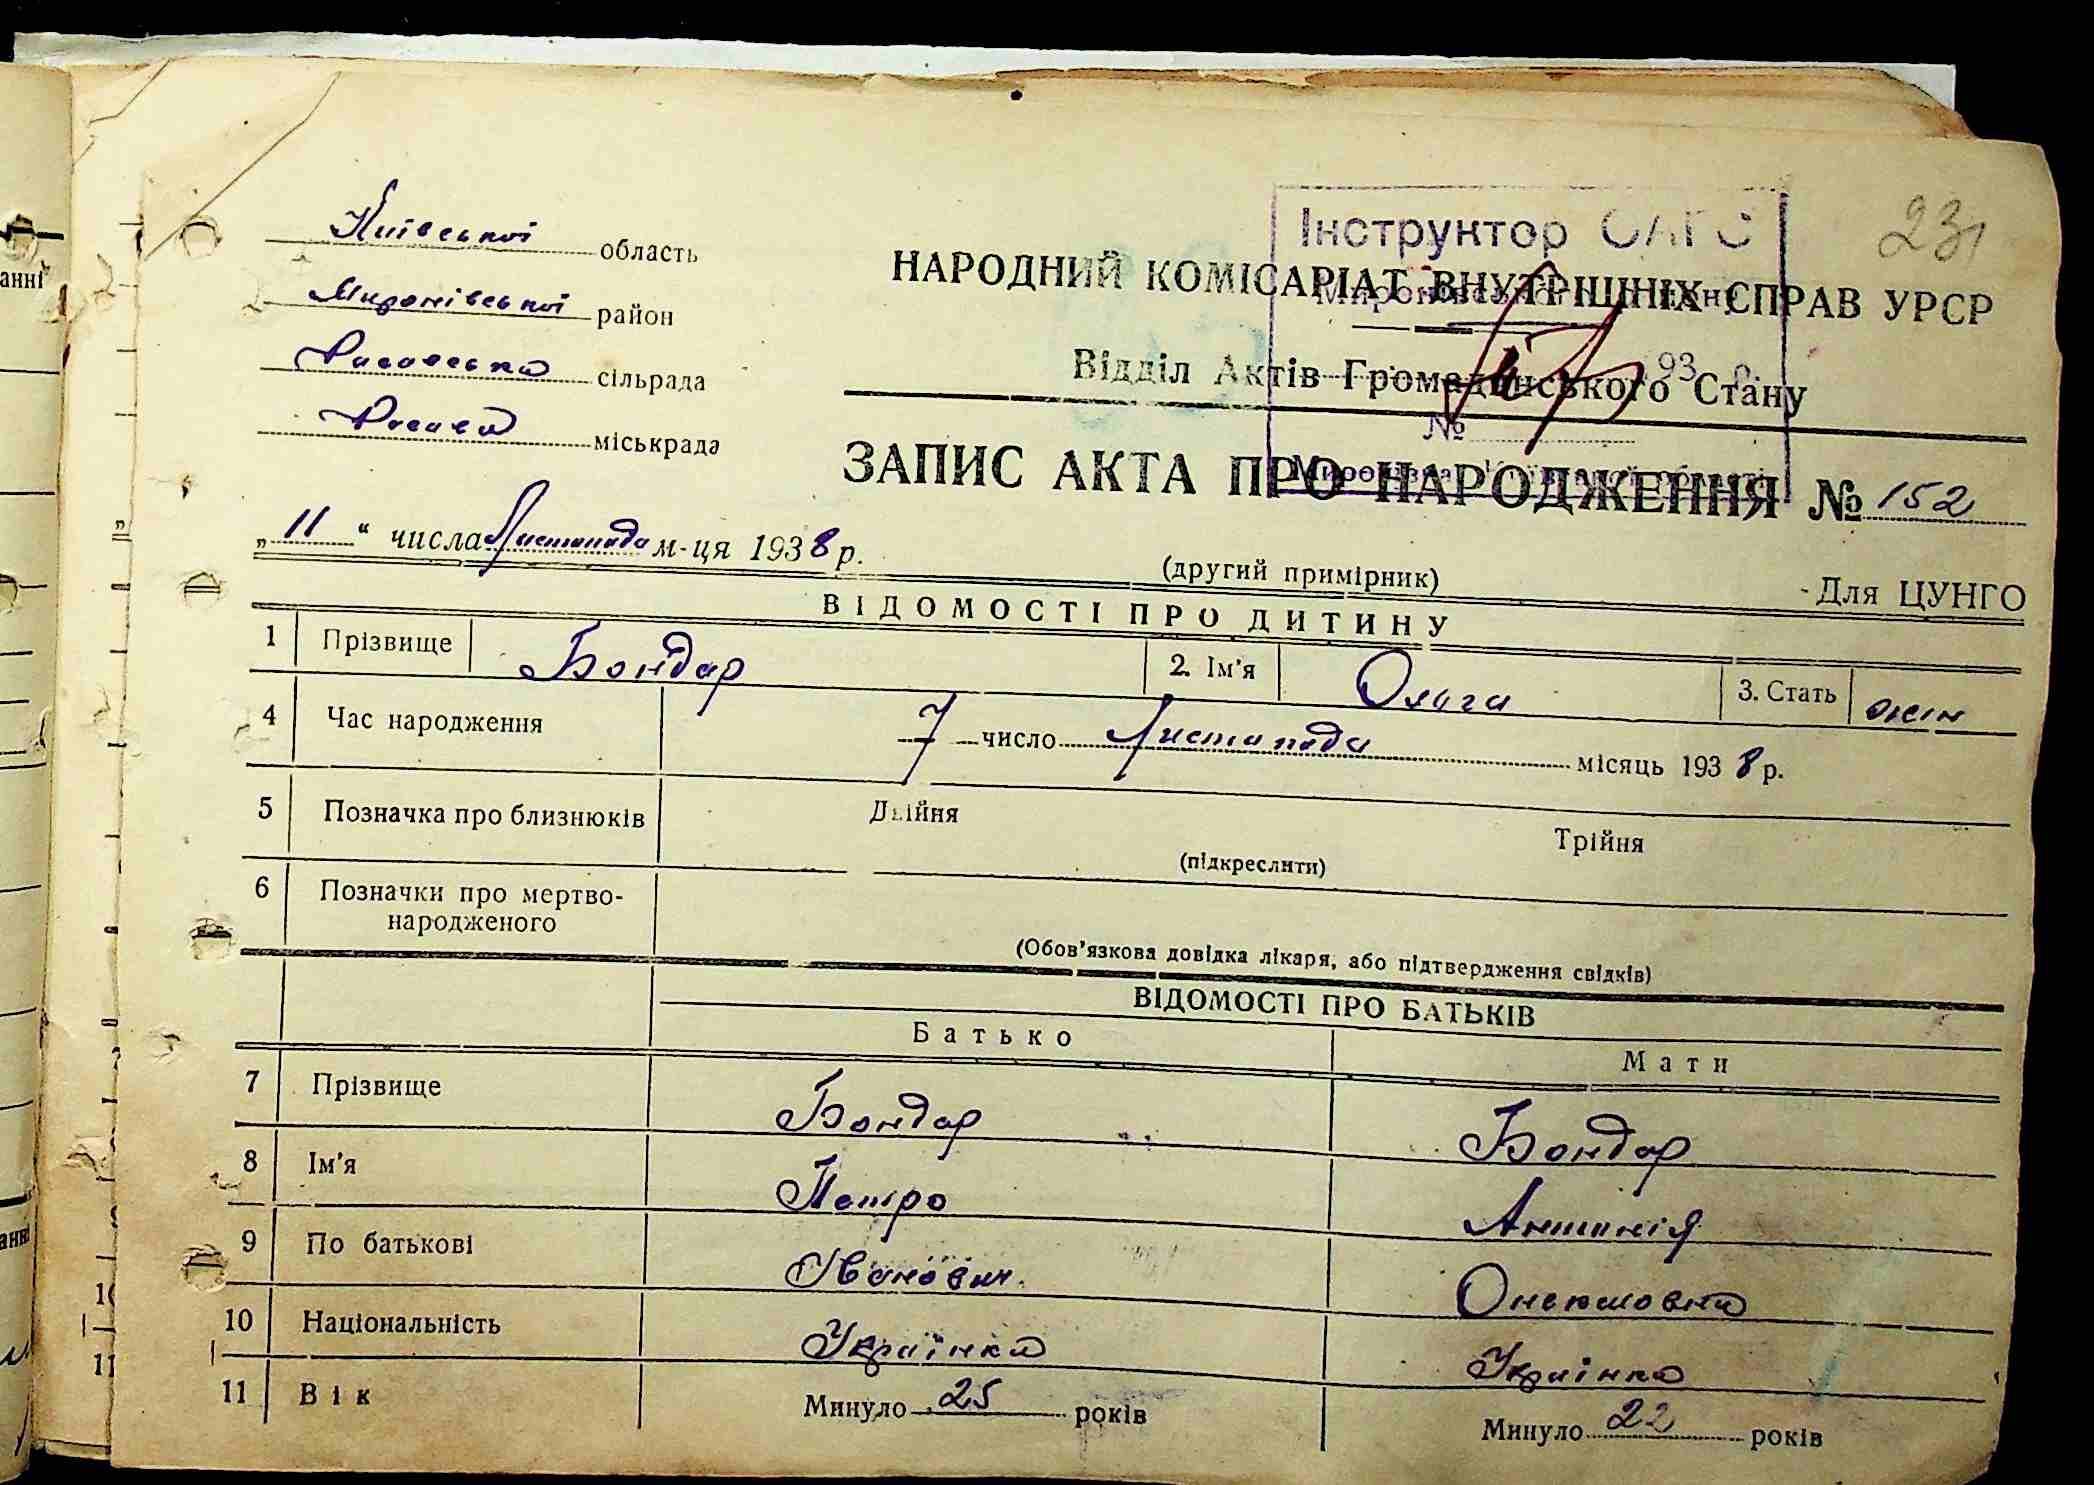 Київської область
Миронівської район
Расавська сільрада
Расава міськрада
Інструктор ОАГС
231
НАРОДНИЙ КОМІСАРІАТ ВНУТРІШНІХ СПРАВ УРСР
Відділ Актів Громадянського Стану
193 р.
№
ЗАПИС АКТА ПРО НАРОДЖЕННЯ № 152
„11“ числа Листопада м-ця 1938 р.
(другий примірник)
Для ЦУНГО
ВІДОМОСТІ ПРО ДИТИНУ
1 Прізвище Бондар 2. Ім'я Ольга 3. Стать жін
4 Час народження 7 число Листопада місяць 1938 р.
5 Позначка про близнюків Двійня Трійня
(підкреслити)
6 Позначки про мертво-
народженого
(Обов'язкова довідка лікаря, або підтвердження свідків)
ВІДОМОСТІ ПРО БАТЬКІВ
Батько Мати
7 Прізвище Бондар Бондар
8 Ім'я Петро Антонія
9 По батькові Іванович
10 Національність Українка Українка
11 Вік Минуло 25 років Минуло 22 років